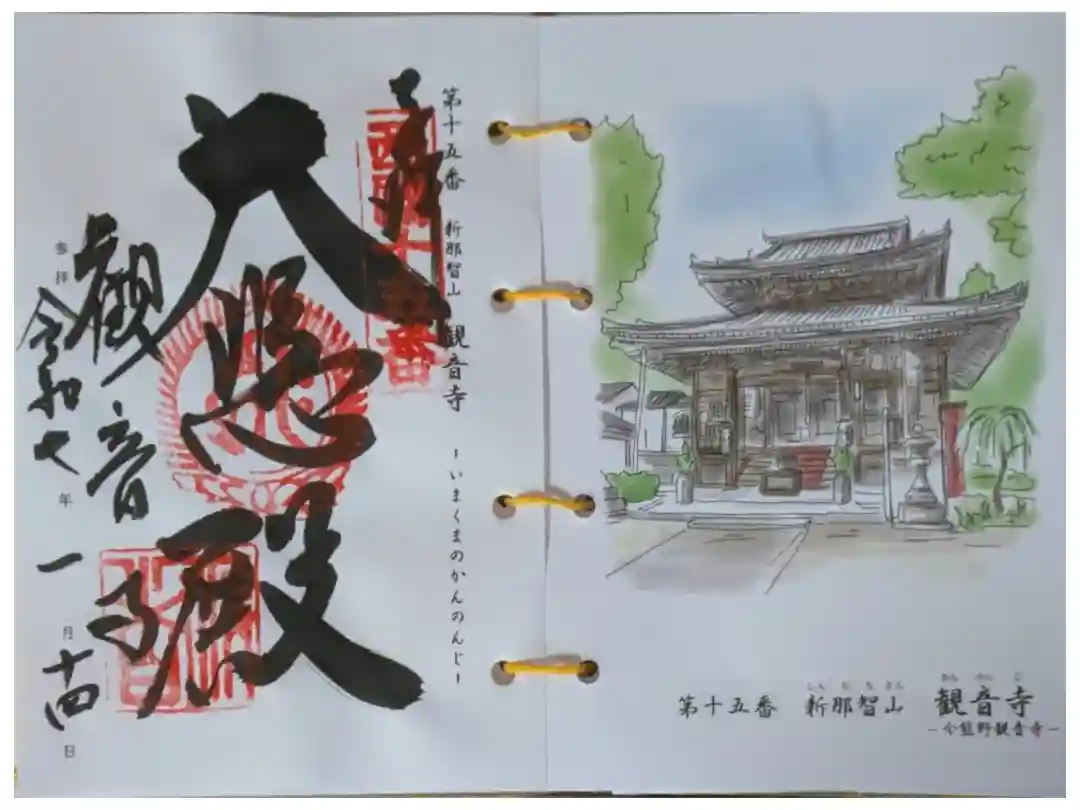 第十五番 新那智山 観音寺 -いまくまのかんのんじ-
奉拝
西国十五番
大悲殿
観音寺
参拝 令和七年一月十四日
しん な ち さん かん のん じ
第十五番 新那智山 観音寺
-今熊野観音寺-